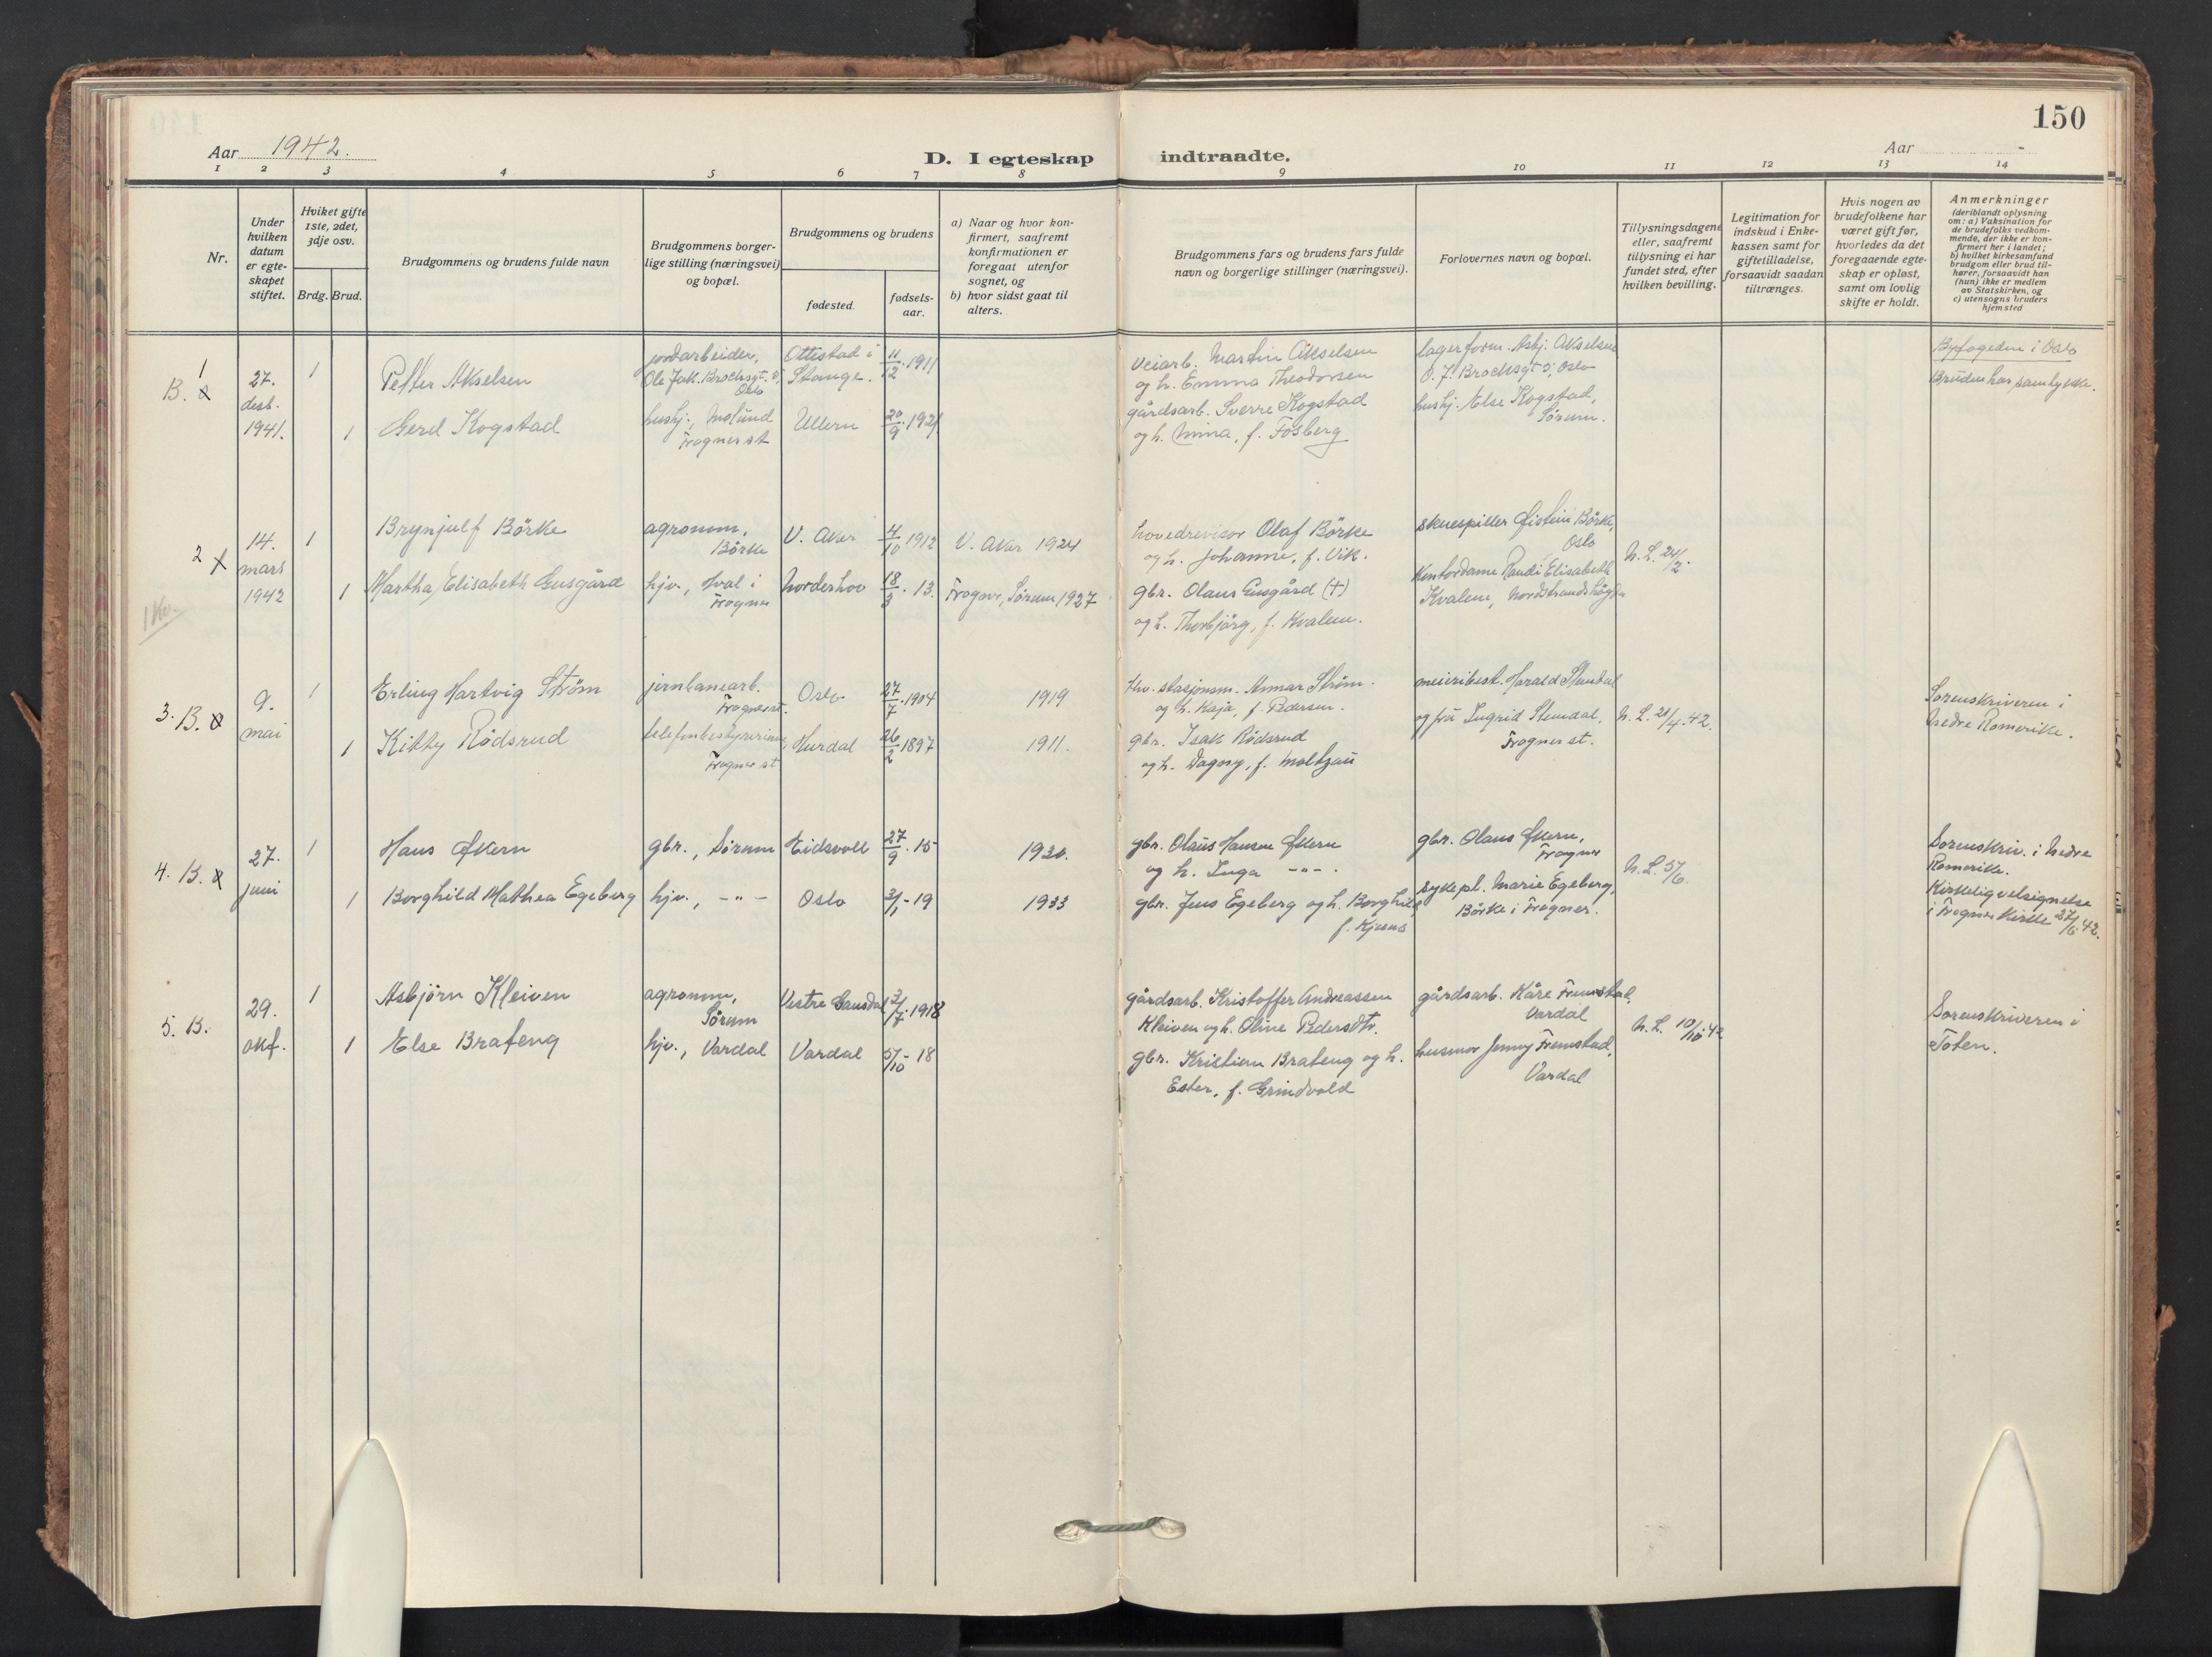 150
Aar 1942.
D. I egteskap indtraadte.
Aar
1 2 3 4 5 6 7 8 9 10 11 12 13 14
Nr.
Under
hvilken
datum
er egte-
skapet
stiftet.
Hviket gifte
1ste, 2det,
3dje osv.
Brdg. Brud.
Brudgommens og brudens fulde navn
Brudgommens borger-
lige stilling (næringsvei)
og bopæl.
Brudgommens og brudens
fødested.
fødsels-
aar.
a) Naar og hvor kon-
firmert, saafremt
konfirmationen er
foregaat utenfor
sognet, og
b) hvor sidst gaat til
alters.
Brudgommens fars og brudens fars fulde
navn og borgerlige stillinger (næringsvei).
Forlovernes navn og bopæl.
Tillysningsdagene
eller, saafremt
tillysning ei har
fundet sted, efter
hvilken bevilling.
Legitimation for
indskud i Enke-
kassen samt for
giftetilladelse,
forsaavidt saadan
tiltrænges.
Hvis nogen av
brudefolkene har
været gift før,
hvorledes da det
foregaaende egte-
skap er opløst,
samt om lovlig
skifte er holdt.
Anmerkninger
(deriblandt oplysning
om: a) Vaksination for
de brudefolks vedkom-
mende, der ikke er kon-
firmert her i landet;
b) hvilket kirkesamfund
brudgom eller brud til-
hører, forsaavidt han
(hun) ikke er medlem
av Statskirken, og
c) utensogns bruders
hjemsted
1
B.
27.
desb.
1941.
1
Petter Akselsen
jordarbeider,
Ole Jak. Brochsgt. 5,
Oslo
Ottestad i
Stange.
11/12.1911
veiarb. Martin Akselsen
og h. Emma Theodorsen
lagerform. Asbj. Akselsen
O. J. Brochsgt 5, Oslo
Byfogeden i Oslo
Bruden har samtykke.
1
Gerd Kogstad
hushj., Molund
Frogner st
Ullern
20/9.1921
gårdsarb. Sverre Kogstad
og h. Mina, f. Fosberg
hushj. Else Kogstad,
Sørum.
2
14.
mars
1942
1
Brynjulf Börke
agronom,
Börke
V. Aker
4/10 1912
V. Aker 1924
hovedrevisor Olaf Börke
og h. Johanne, f. Vik.
skuespiller Øistein Börke,
Oslo
N. L. 24/2.
1
Martha Elisabeth Gusgård
hjv., Hval i
Frogner
Norderhov
18/3.13.
Frogner, Sørum 1927
gbr. Olaus Gusgård (†)
og h. Thorbjörg, f. Kvalem.
Kontordame Randi Elisabeth
Kvalem, Nordstrandshögda
1 Kv.
3. B.
9.
mai
1
Erling Hartvig Strøm
jernbanearb.
Frogner st.
Oslo
27/7.1904
1919
fhv. stasjonsm. Anmar Strøm.
og h. Kaja, f. Pedersen.
meieribest. Harald Stendal
og fru Ingrid Stendal.
Frogner st.
N. L. 21/4.42.
Sorenskriveren i
Nedre Romerike.
1
Kitty Rødsrud
telefonbestyrerinne
Frogner st
Hurdal
26/2 1897
1911.
gbr. Isak Rødsrud
og h. Dagny, f. Moltzau
4. B.
27.
juni
1
Hans Økern
gbr., Sörum
Eidsvoll
27/9.15
1930.
gbr. Olaus Hansen Økern
og h. Inga -"-.
gbr. Olaus Økern,
Frogner
N. L. 5/6.
Sorenskriv. i Nedre
Romerike.
Kirkelig velsignelse
i Frogner kirke 27/6.42.
1
Borghild Mathea Egeberg
hjv., -"-
Oslo
3/1-19
1933
gbr. Jens Egeberg og h. Borghild
f. Kjusus
sykepl. Marie Egeberg,
Börke i Frogner.
5. B.
29.
okt.
1
Asbjørn Kleiven
agronom,
Sørum
Vestre Gausdal
3/7.1918
gårdsarb. Kristoffer Andreassen
Kleiven og h. Oline Pedersdtr.
gårdsarb. Kåre Fremstad,
Vardal
N. L. 10/10.42
Sorenskriveren i
Toten.
1
Else Brateng
hjv., Vardal
Vardal
5/10-18
gbr. Kristian Brateng og h.
Ester, f. Grindvold
husmor Jenny Fremstad,
Vardal